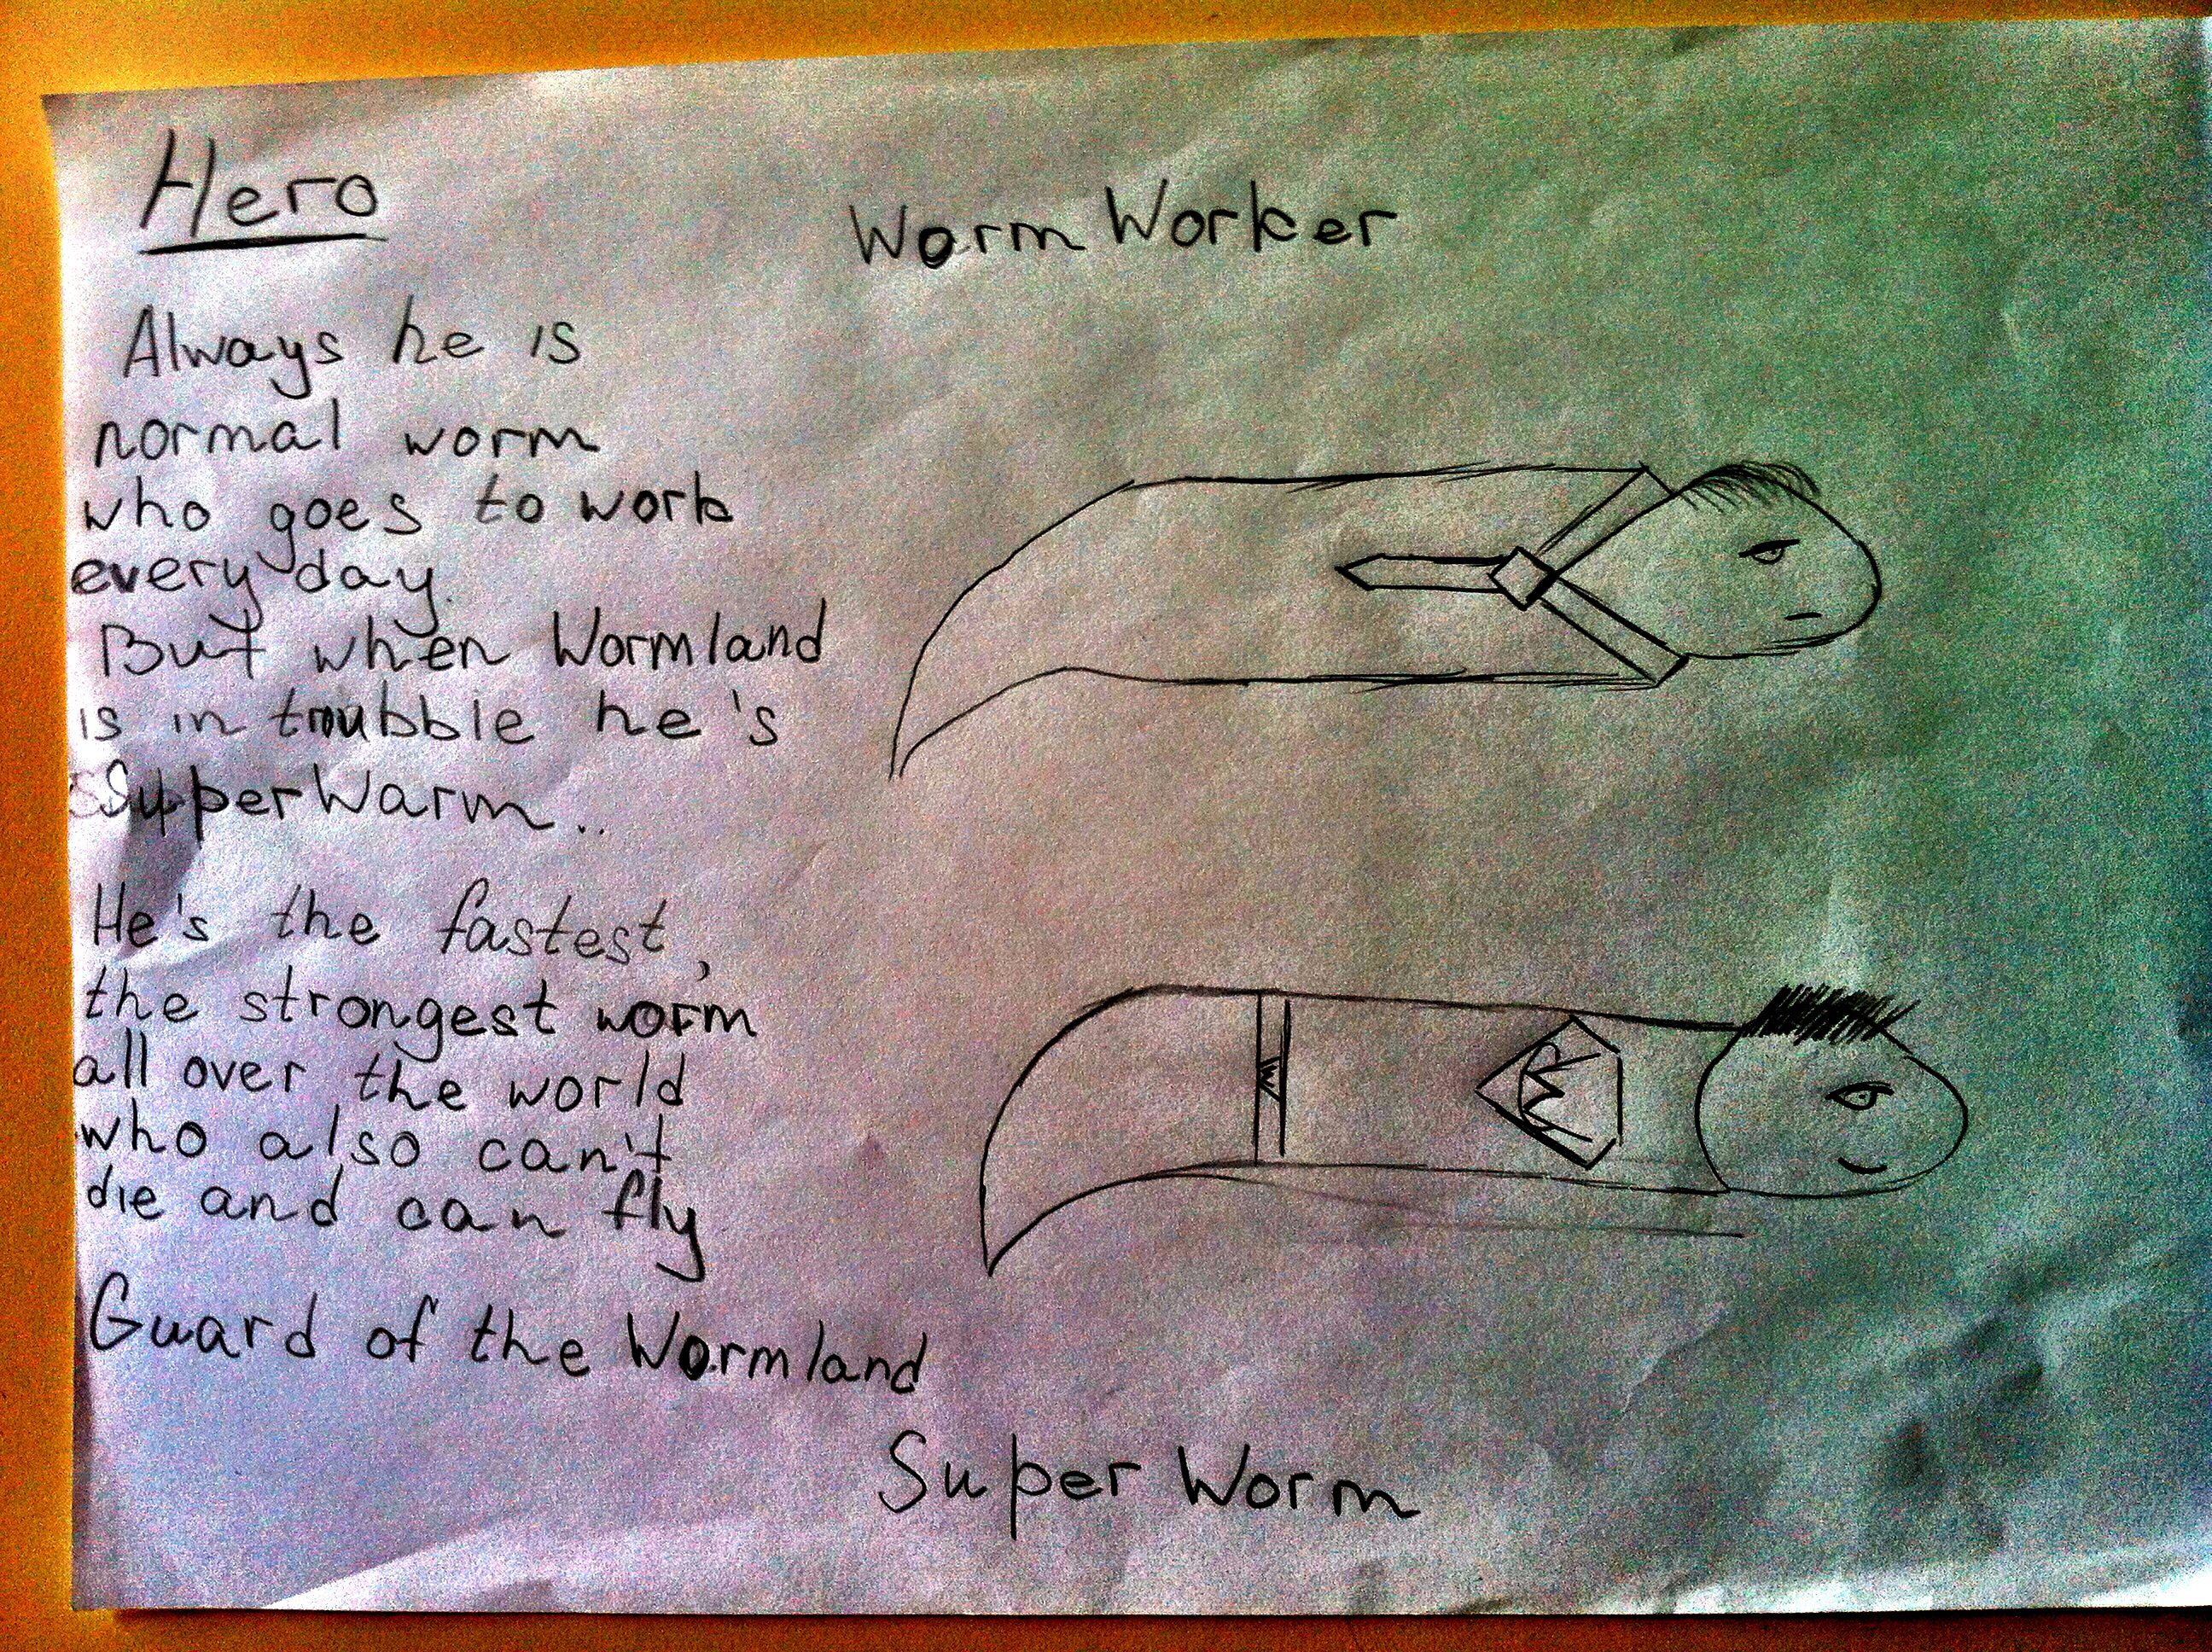 Hero
Worm Worker
Always he is
normal worm
who goes to work
every day.
But when Wormland
is in troubble he's
SupperWarm..
He's the fastest,
the strongest worm
all over the world
who also can't
die and can fly
Guard of the Wormland
Super Worm